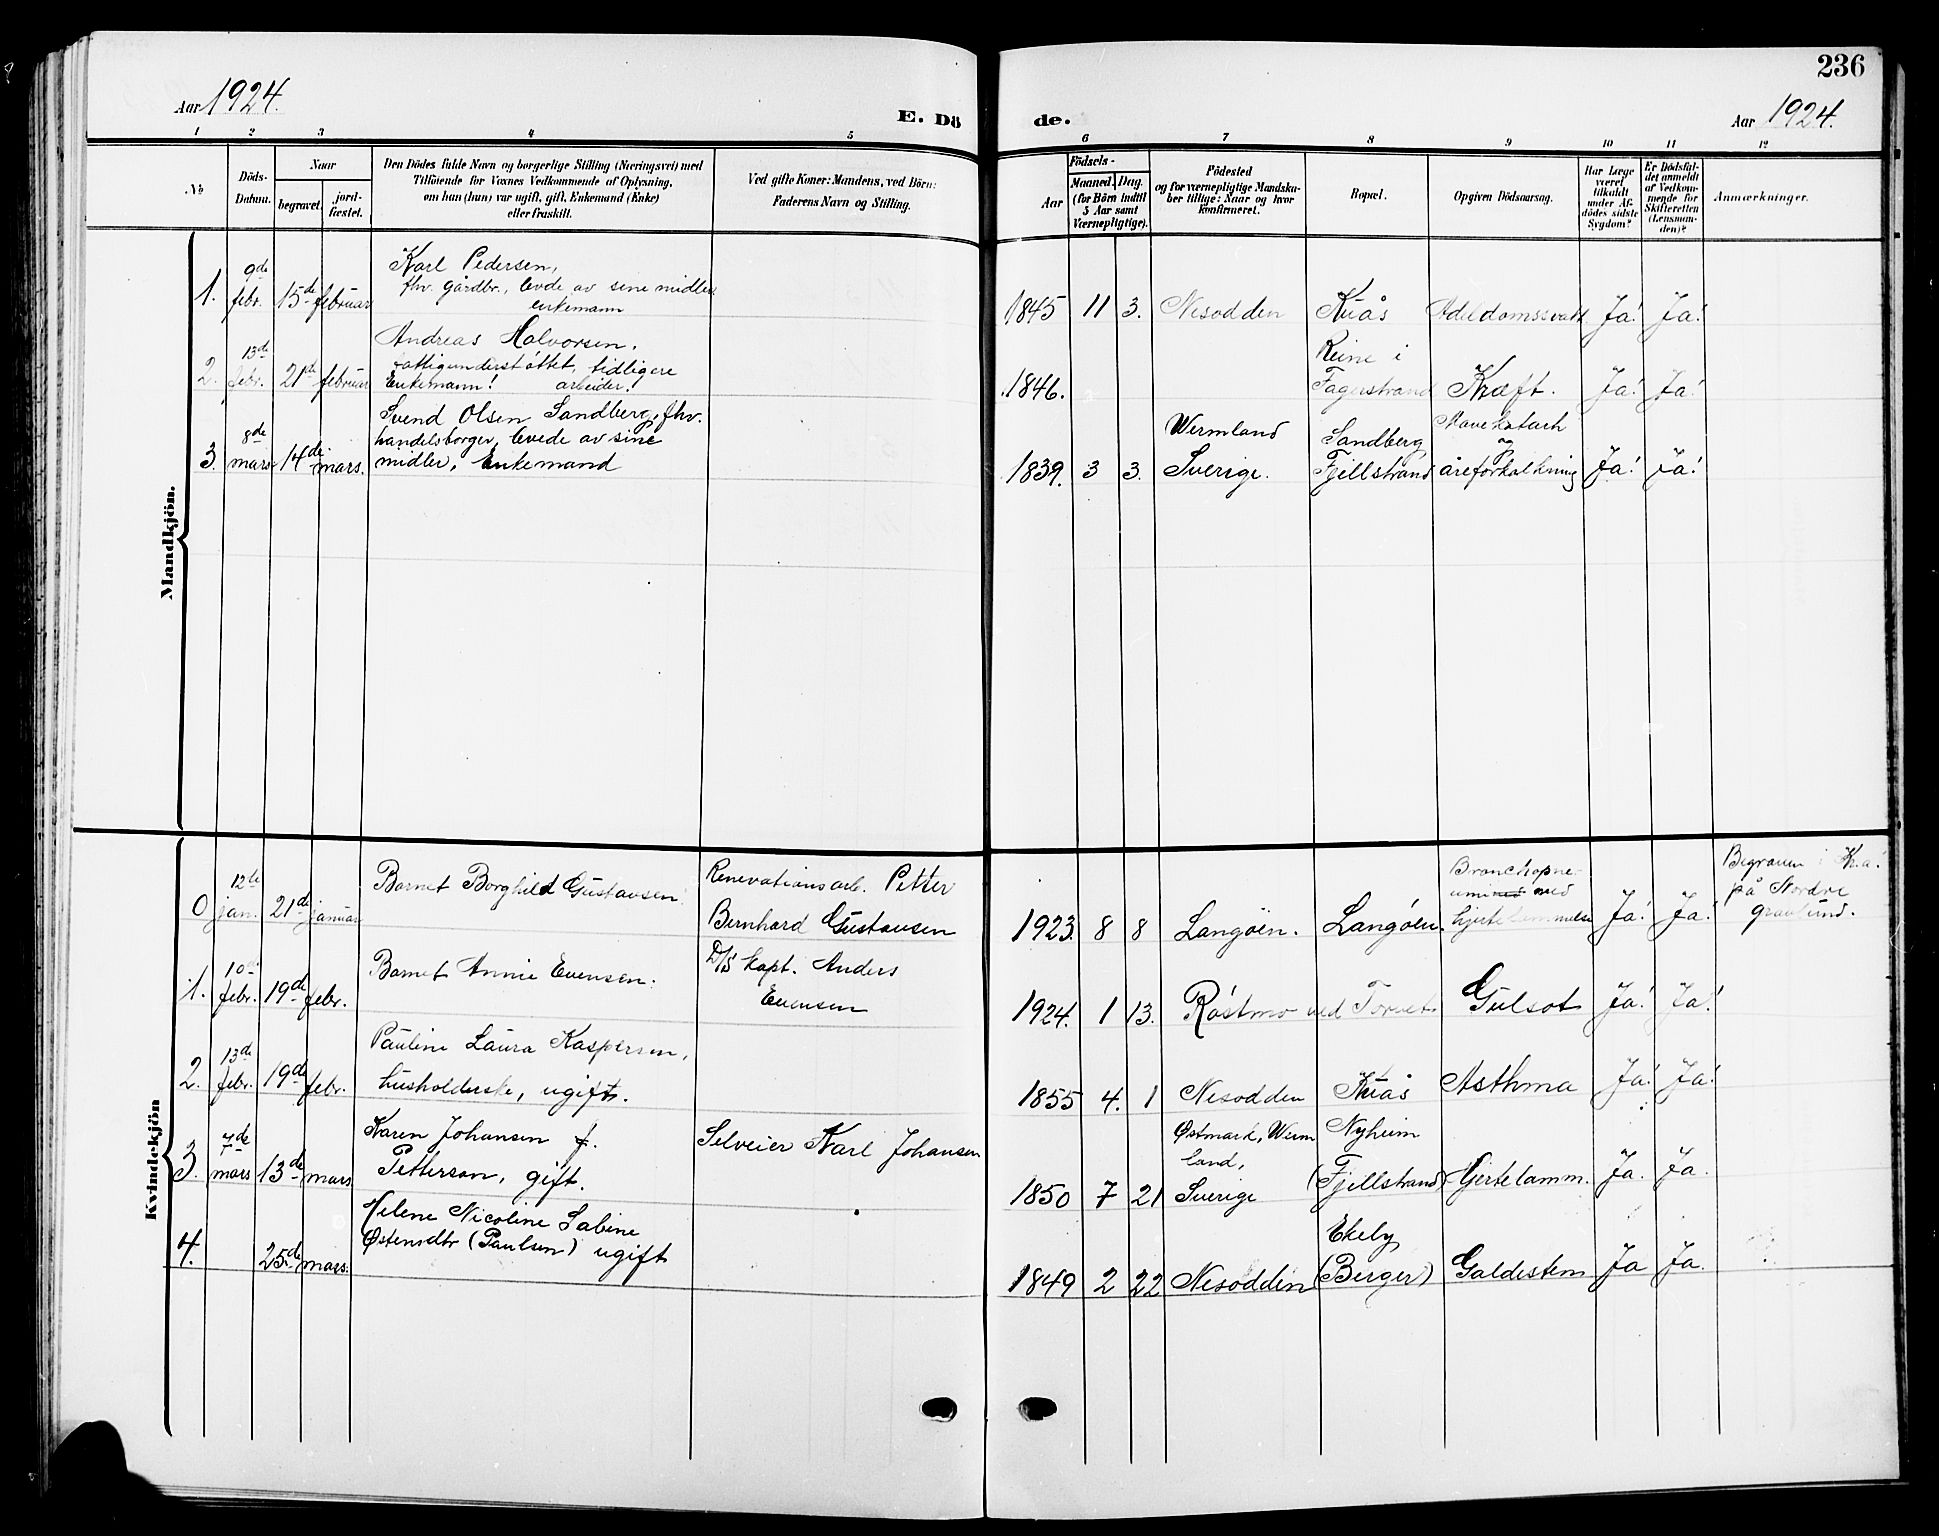 Aar 1924.
E. Dö
de.
236
Aar 1924.
1 2 3 4 5 6 7 8 9 10 11 12
No
Döds-
Datum.
Naar
begravet.
jord-
fæstet.
Den Dödes fulde Navn og borgerlige Stilling (Næringsvei) med
Tilföiende for Voxnes Vedkommende af Oplysning,
om han (hun) var ugift, gift, Enkemand (Enke)
eller fraskilt.
Ved gifte Koner: Mandens, ved Börn:
Faderens Navn og Stilling.
Födsels-
Aar
Maaned. Dag.
(for Börn indtil
5 Aar samt
Værnepligtige).
Födested
og for værnepligtige Mandska-
ber tillige: Naar og hvor
konfirmeret.
Bopæl.
Opgiven Dödsaarsag.
Har Læge
været
tilkaldt
under Af-
dödes sidste
Sygdom?
Er Dödsfal-
det anmeldt
af Vedkom-
mende for
Skifteretten
(Lensman-
den)?
Anmærkninger.
Mandkjön.
1. 9de febr. 15de februar
Karl Pedersen,
fhv. gårdbr., levde av sine midler
enkemann
1845 11 3. Nesodden Kuås Ja! Ja!
2. 13de febr. 21de februar
Andreas Halvorsen,
fattigunderstøttet, tidligere
Enkemann! arbeider!
1846. Reine i
Fagerstrand Kræft. Ja! Ja!
3. 8de mars 14de mars.
Svend Olsen Sandberg, fhv.
handelsborger, levede av sine
midler, Enkemand
1839. 3 3. Wermland
Sverige.
Sandberg
Fjellstrand
Mavekatarh
&
åreforkalkning Ja! Ja!
Kvindekjön
0 12te jan. 21de januar
Barnet Borghild Gustavsen.
Renovationsarb. Petter
Bernhard Gustavsen
1923. 8 8 Langøen. Langøen.
Bronchopne-
med
hjertelammelse Ja! Ja!
Begraven i Kr.a.
på Nordre
gravlund.
1. 10de febr. 19de febr.
Barnet Annie Evensen.
D/S kapt. Anders
Evensen
1924. 1 13. Røstmo ved Torvet Gulsot Ja! Ja!
2. 13de febr. 19de febr.
Pauline Laura Kaspersen,
husholderske, ugift.
1855 4. 1 Nesodden Kuås Asthma Ja! Ja!
3. 7de mars 13de mars
Karen Johansen f.
Petterson, gift.
Selveier Karl Johansen
1850 7 21 Østmark, Werm
land,
Sverige
Nyheim
(Fjellstrand) Hjertelamm. Ja. Ja.
4. 25de mars.
Helene Nicoline Sabine
Østensdtr (Paulsen) ugift
1849 2 22 Nesodden Ekeby
(Berger) Galdesten Ja Ja.